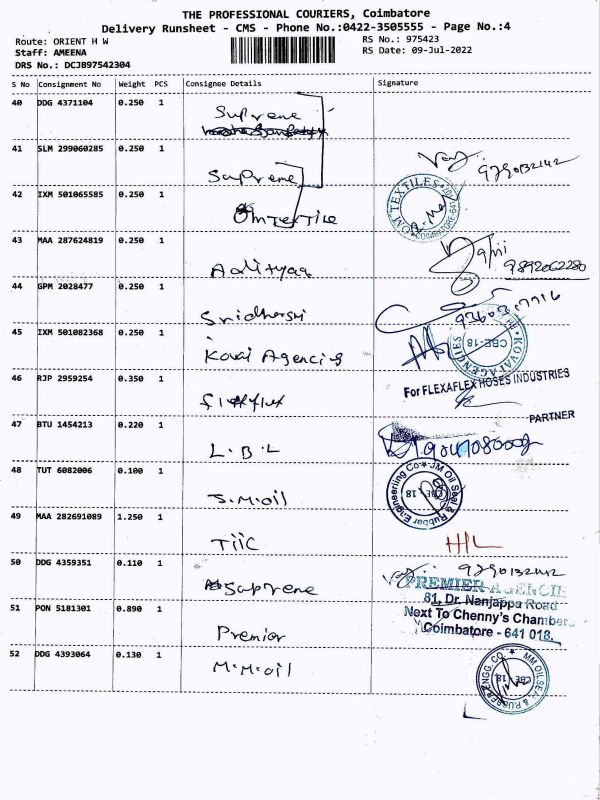 THE PROFESSIONAL COURIERS, Coimbatore
Delivery Runsheet - CMS - Phone No.:0422-3505555 - Page No.:4
Route: ORIENT H W
RS No.: 975423
Staff: AMEENA
RS Date: 09-Jul-2022
DRS No.: DCJB97542304
S No Consignment No Weight PCS Consignee Details Signature
40 DDG 4371104 0.250 1 Suprene
41 SLM 299060285 0.250 1 Suprene 9790132142
42 IXM 501065585 0.250 1 Omtextile OM TEXTILES COIMBATORE-641
43 MAA 287624819 0.250 1 Adityaa 9892062280
44 GPM 2028477 0.250 1 Sridharshi
45 IXM 501082368 0.250 1 Kovai Agencies THE KOVAI AGENCIES CBE-18
46 RJP 2959254 0.350 1 For FLEXAFLEX HOSES INDUSTRIES
PARTNER
47 BTU 1454213 0.220 1 L.B.L
48 TUT 6082006 0.100 1 J.M.oil JM Oil Seal & Rubber Engineering Co CBE-18
49 MAA 282691089 1.250 1 TIIC
50 DDG 4359351 0.110 1 Suprene 9790132142
51 PON 5181301 0.890 1 Premier PREMIER AGENCIE
81, Dr. Nanjappa Road
Next To Chenny's Chambers
Coimbatore - 641 018.
52 DDG 4393064 0.130 1 M.M.oil MM OIL SEAL & RUBBER ENGG. CO. CBE 18